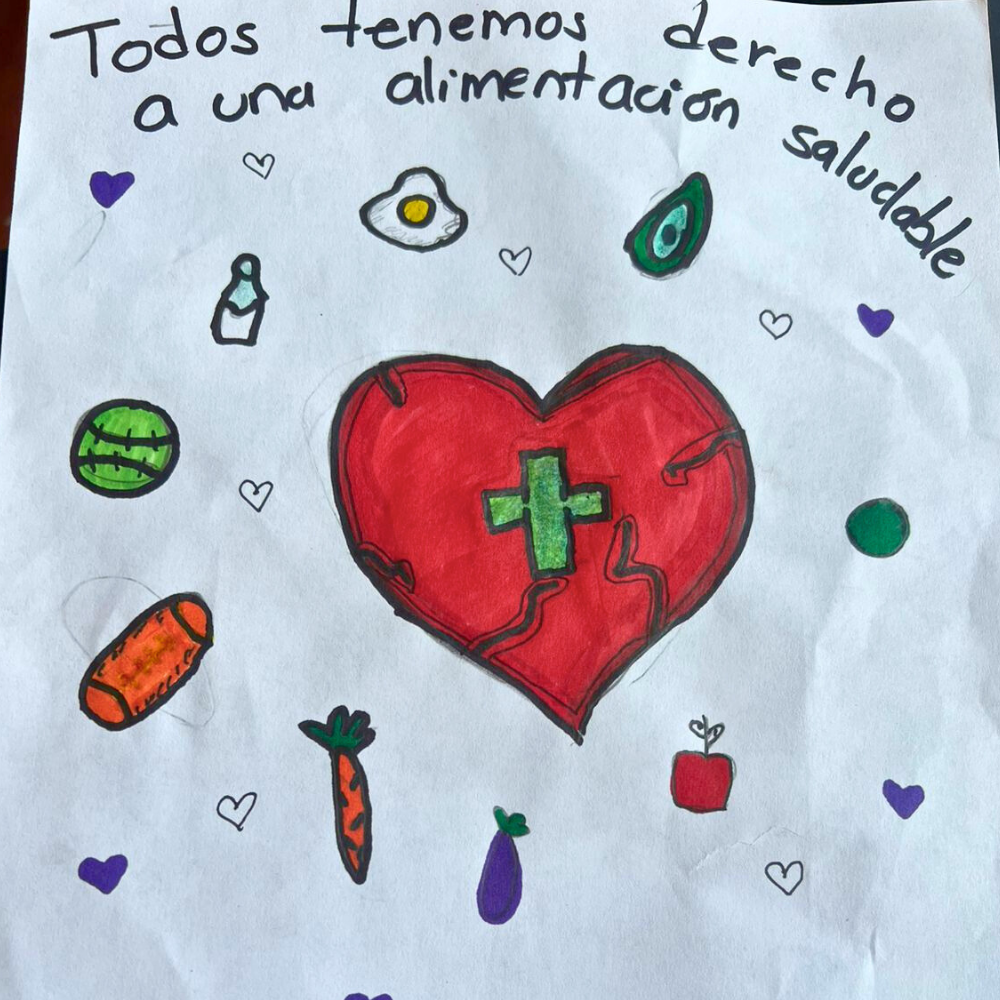 Todos tenemos derecho
a una alimentación saludable